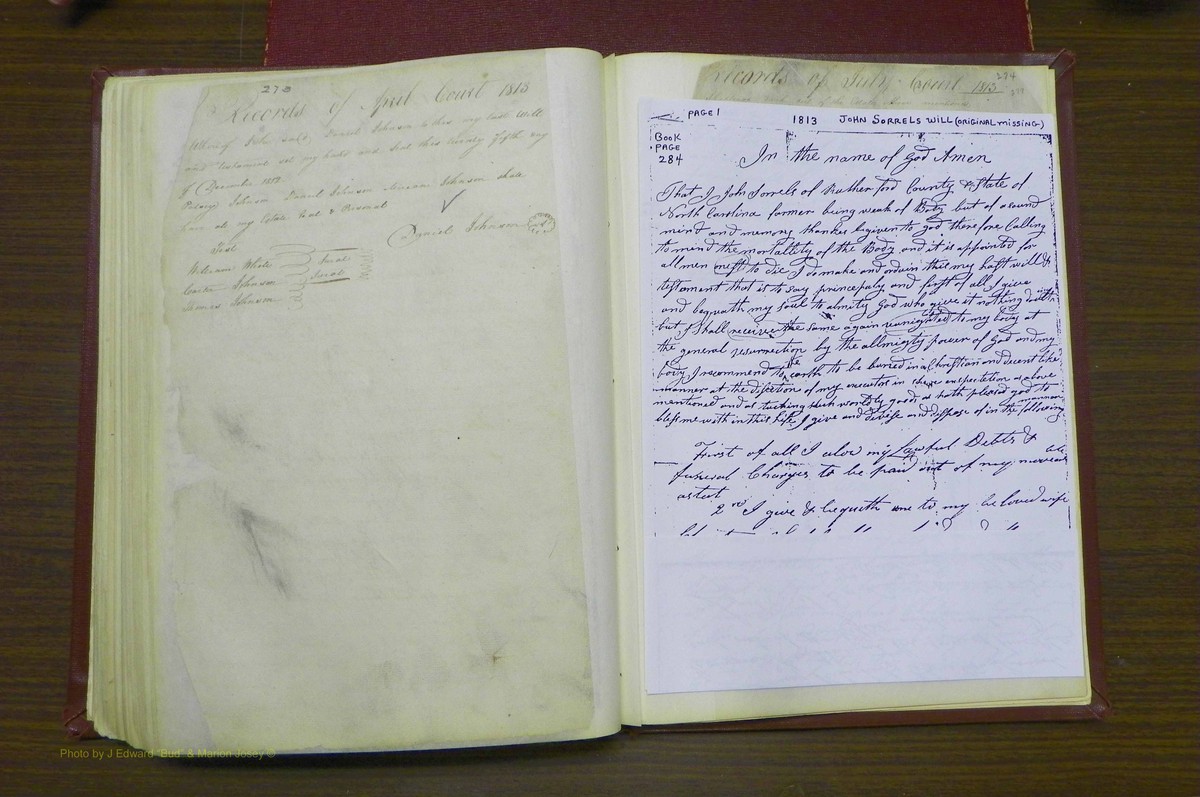 273
Records of April Court 1813
Whereof I the said Daniel Johnson to this my last will
and testament set my hand and Seal this twenty fifth day
of December 1812
Johnson Daniel Johnson Johnson shale
have all my Estate Real & Personal
Daniel Johnson
Test
William White
Jurat
Carter Johnson
Jurat
James Johnson
Records of July Court 1813
274
PAGE 1
1813 JOHN SORRELS WILL (ORIGINAL MISSING)
BOOK
PAGE
284
In the name of God Amen
That I John Sorrels of Ruther ford County & State of
North Carolina farmer being weak of Body but of a sound
mind and memory thankes be given to god therefore Calling
to mind the mortallity of the Body and it is appointed for
all men to die I do make and ordain this my last will &
testament that is to say princepaly and first of all I give
and bequath my soul to almity God who give it nothing
but I shall receive the same again to my body at
the general resurrection by the allmigty power of God and my
body I recommend to the earth to be buried in a Christian and decent like
manner at the discrtion of my executor in expectation as above
mentioned and as tuching such worldly good as hath pleased god to
bless me with in this life I give and devise and dispose of in the following
manner
First of all I alow my Lawful Debts &
funeral Charges to be paid out of my
asteat
2nd I give & bequeth to my beloved wife
Photo by J Edward "Bud" & Marion Josey ©